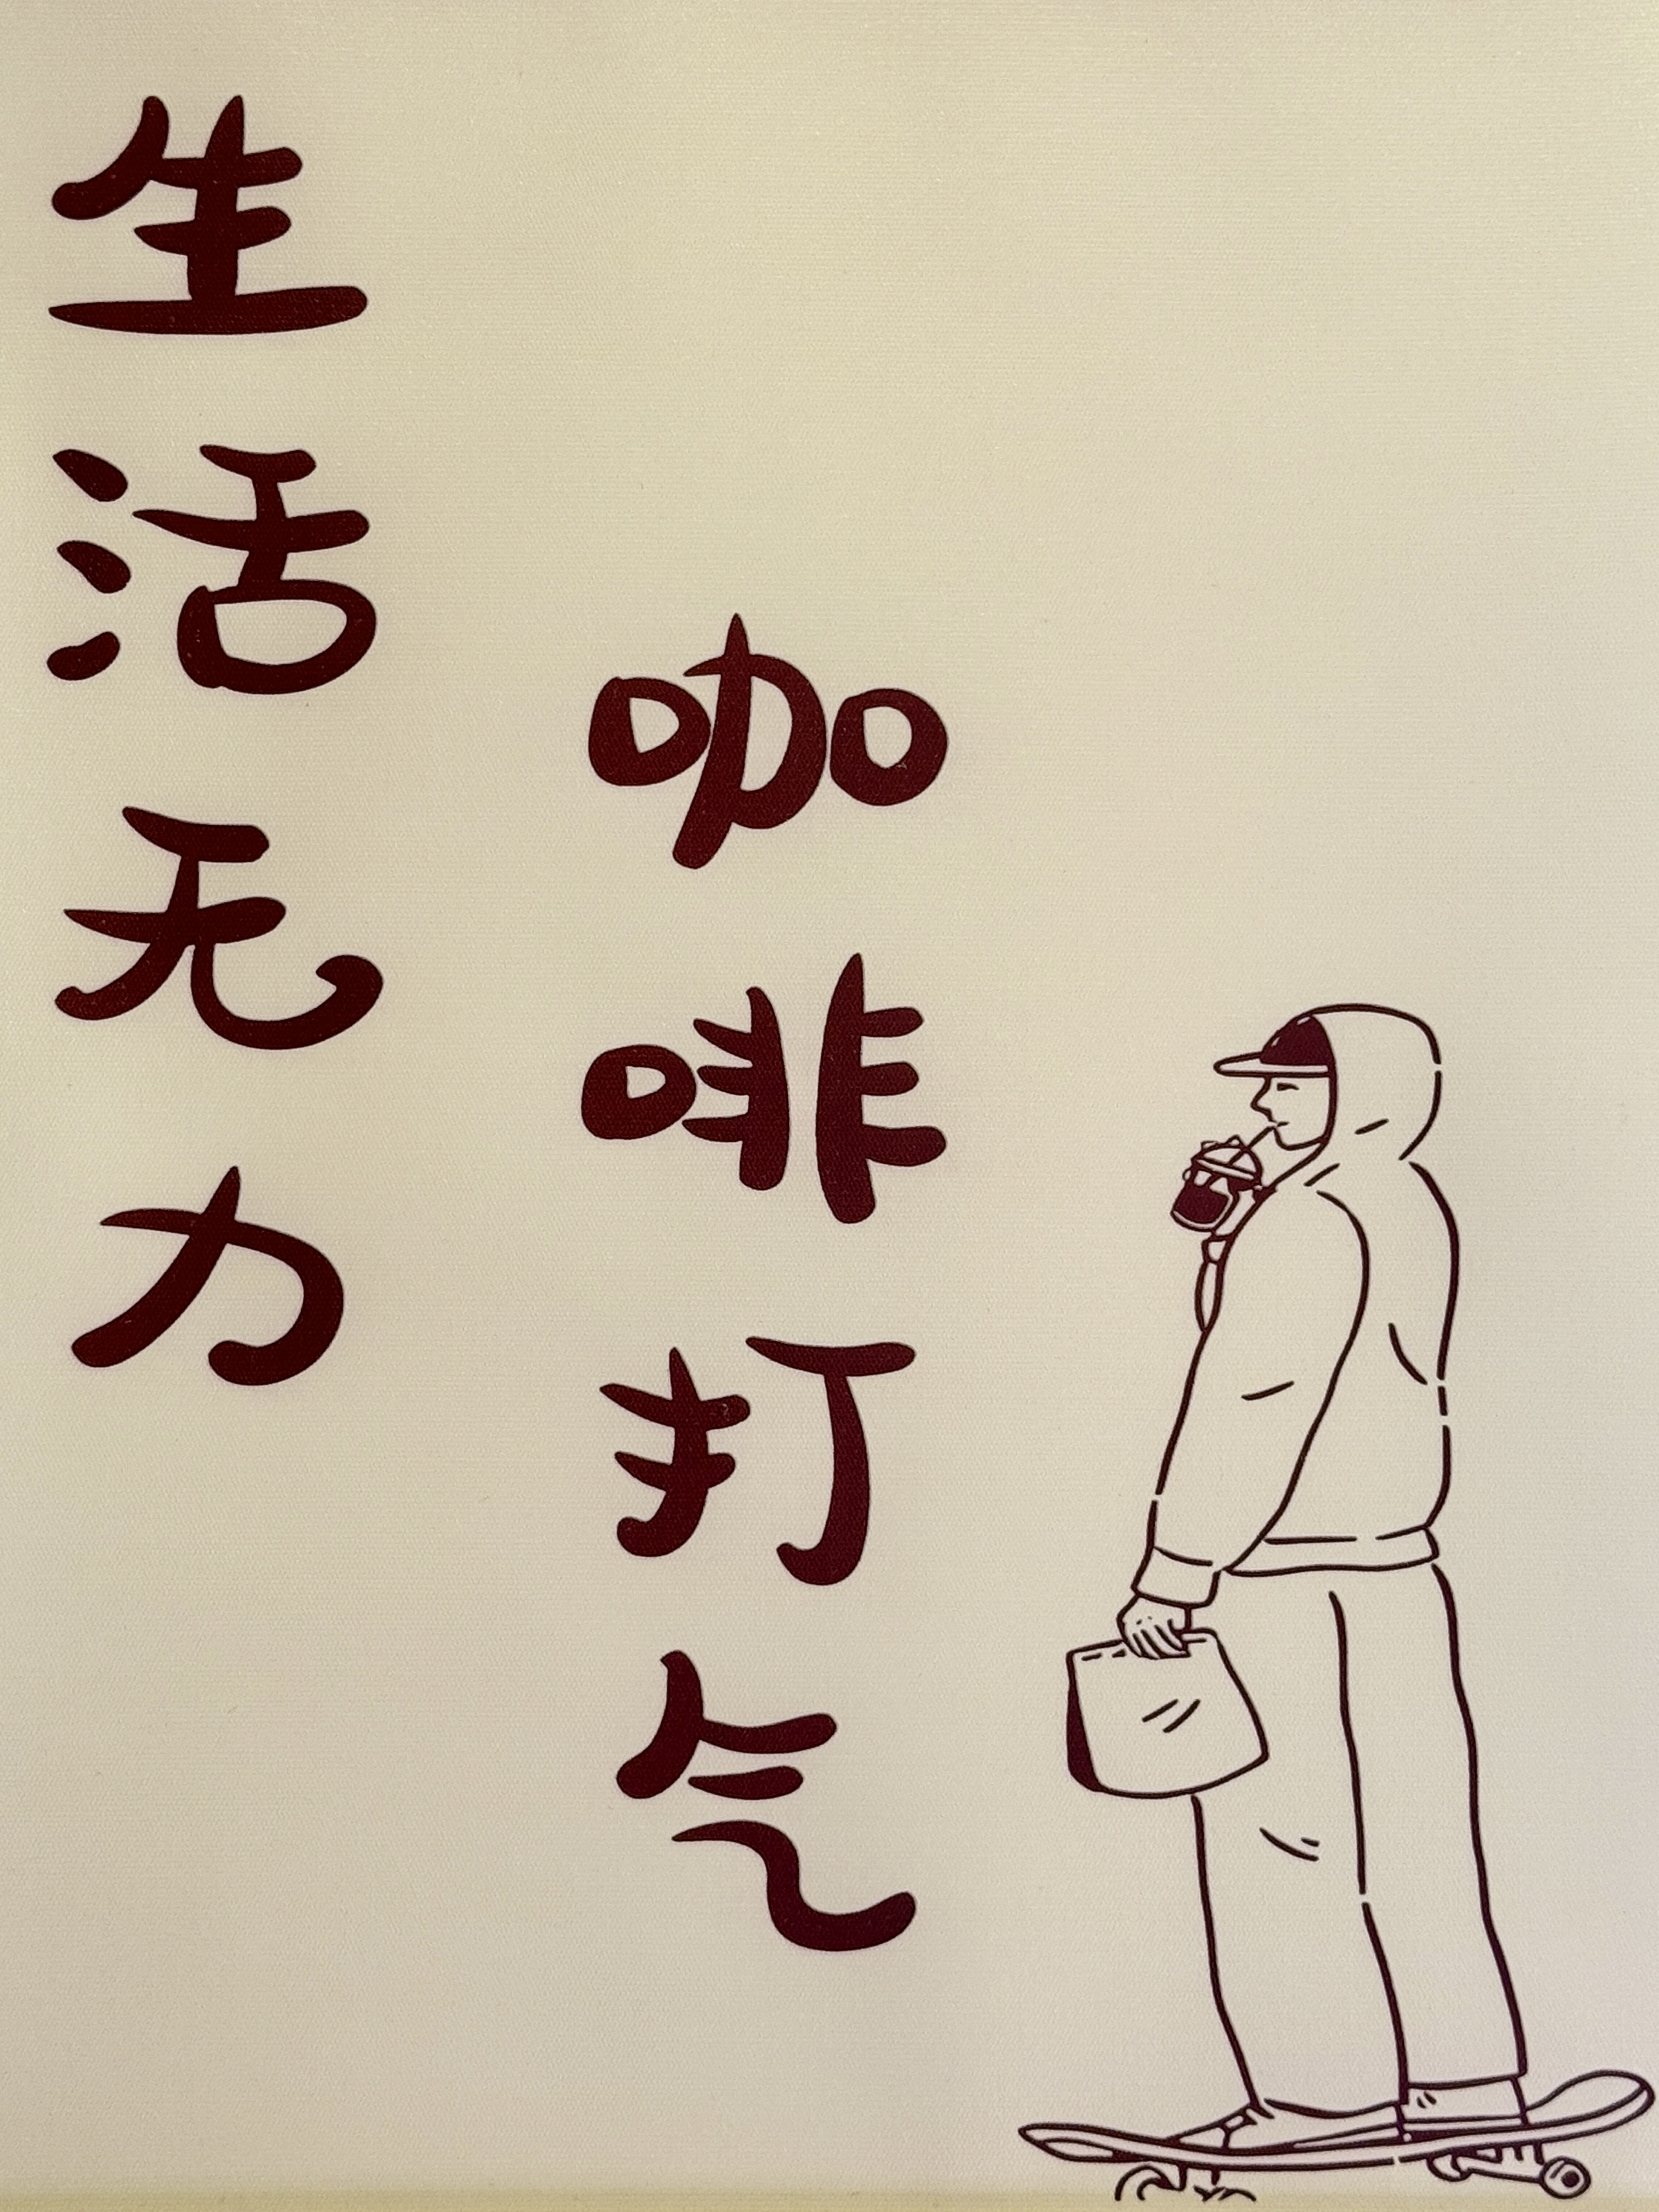 生活无力
咖啡打气